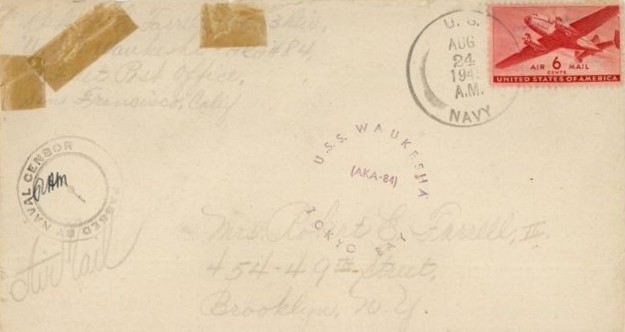 AKA 84
Post Office,
San Francisco, Calif
U. S.
AUG
24
194
A.M.
NAVY
AIR 6 MAIL
CENTS
UNITED STATES OF AMERICA
U.S.S. WAUKESHA
(AKA-84)
TOKYO BAY
PASSED BY NAVAL CENSOR
RAM
Air Mail
Mrs. Robert E. Farrell, II.
454-49th Street,
Brooklyn, N.Y.